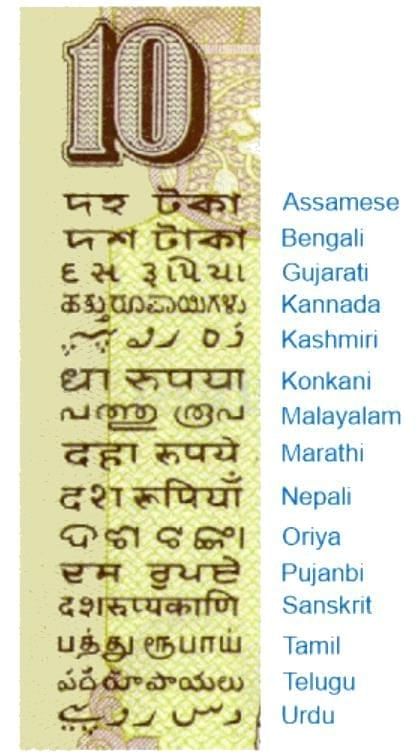 10
দহ টকা Assamese
দশ টাকা Bengali
દસ રૂપિયા Gujarati
ಹತ್ತು ರೂಪಾಯಿಗಳು Kannada
Kashmiri
धा रुपया Konkani
പത്തു രൂപ Malayalam
दहा रुपये Marathi
दश रुपियाँ Nepali
ଦଶ ଟଙ୍କା Oriya
ਦਸ ਰੁਪਏ Pujanbi
दशरूप्यकाणि Sanskrit
பத்து ரூபாய் Tamil
పది రూపాయలు Telugu
دس روپیے Urdu